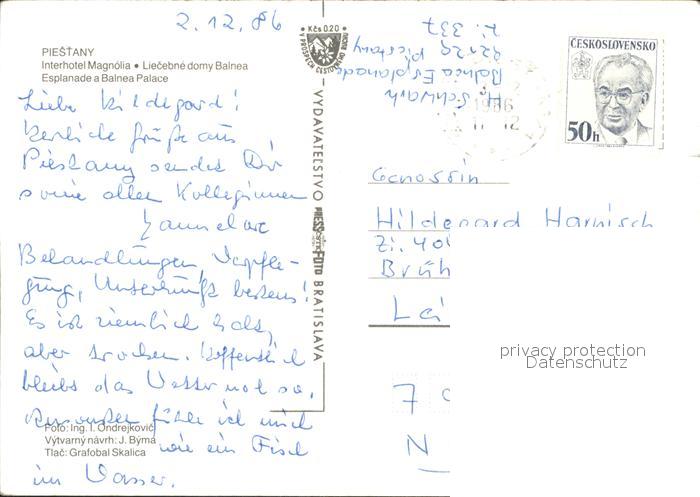 2.12.86
PIEŠŤANY
Interhotel Magnólia • Liečebné domy Balnea
Esplanade a Balnea Palace
Liebe Hildegard!
Herzliche Grüße aus
Piestany sendet Dir
sowie allen Kolleginnen
Hannelore
Behandlungen, Verpfle-
gung, Unterkunft bestens!
Es ist ziemlich kalt,
aber trocken. Hoffentlich
bleibt das Wetter noch so.
Ansonsten fühle ich mich
wie ein Fisch
im Wasser.
Foto: Ing. I. Ondrejkovič
Výtvarný návrh: J. Býma
Tlač: Grafobal Skalica
Kčs 0,20
V PROSPECH CESTOVNÉHO RUCHU
VYDAVATEĽSTVO PRESSFOTO BRATISLAVA
H. Schwarh
Balnea Esplanade
92129 Piestany
Zi. 337
1986
12
ČESKOSLOVENSKO
50h
Genossin
Hildegard Harnisch
Zi. 40
Brüh
Lei
7
N
privacy protection
Datenschutz